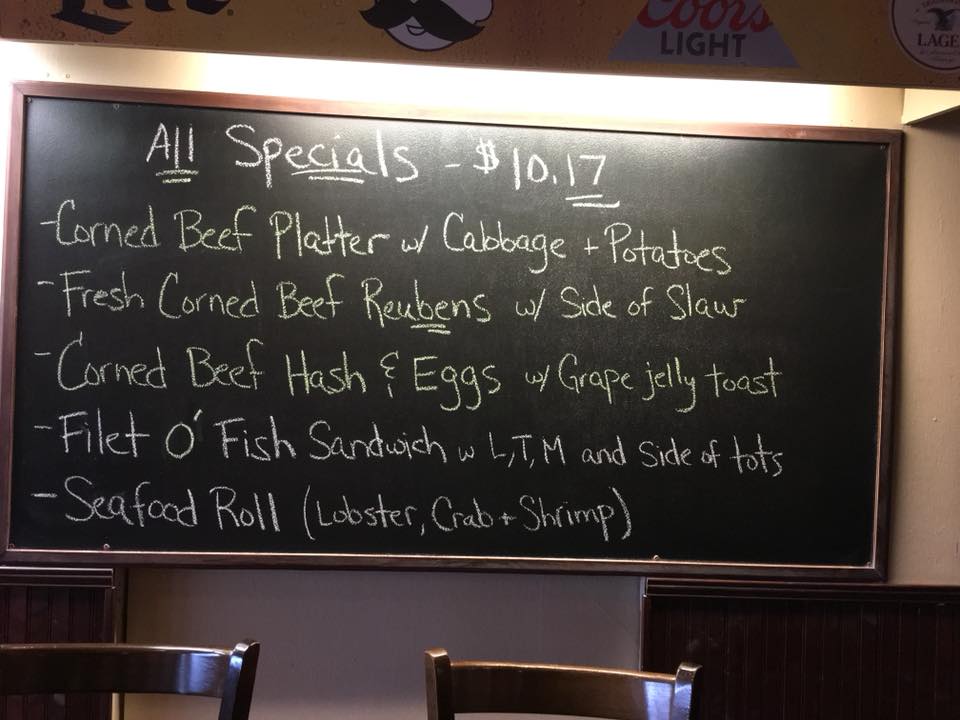 Lite
Coors
LIGHT
LAGER
All Specials - $10.17
-Corned Beef Platter w/ Cabbage + Potatoes
-Fresh Corned Beef Reubens w/ Side of Slaw
-Corned Beef Hash & Eggs w/ Grape jelly toast
-Filet O' Fish Sandwich w L,T,M and Side of tots
-Seafood Roll (Lobster, Crab + Shrimp)